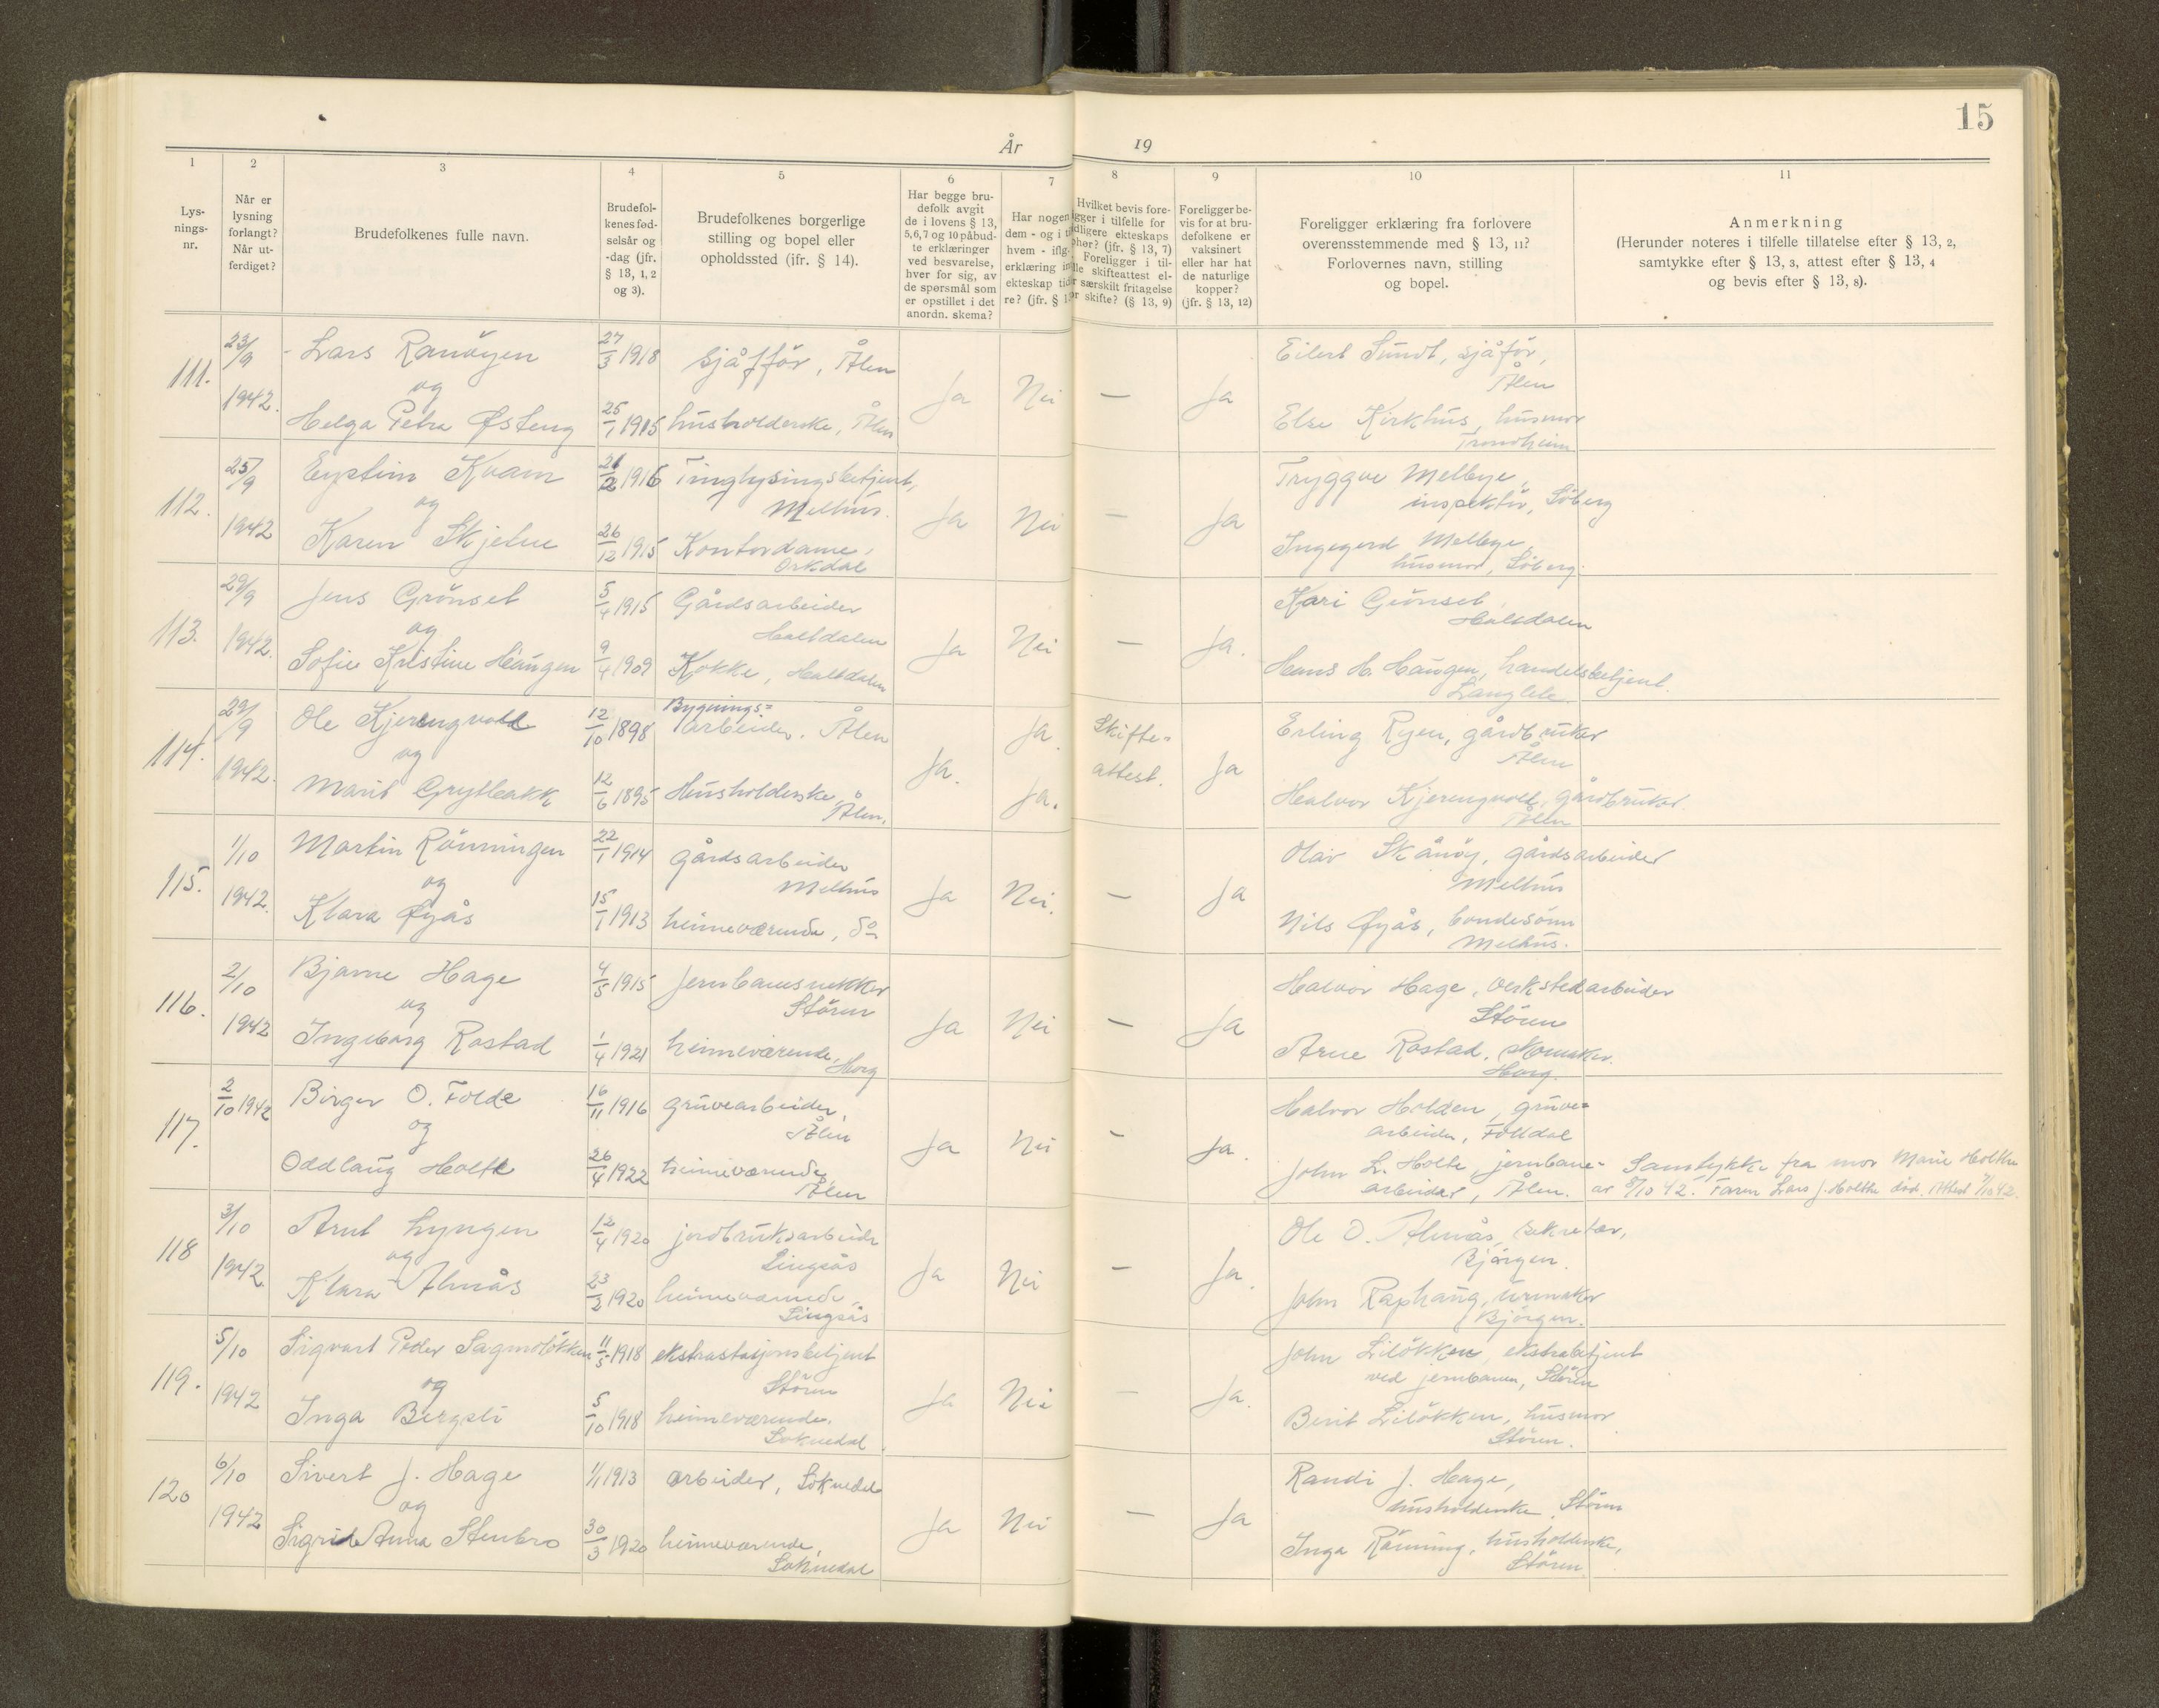 15
År 19
1 2 3 4 5 6 7 8 9 10 11
Lys-
nings-
nr.
Når er
lysning
forlangt?
Når ut-
ferdiget?
Brudefolkenes fulle navn.
Brudefol-
kenes fød-
selsår og
-dag (jfr.
§ 13, 1, 2
og 3).
Brudefolkenes borgerlige
stilling og bopel eller
opholdssted (ifr. § 14).
Har begge bru-
defolk avgit
de i lovens § 13,
5,6,7 og 10 påbud-
te erklæringer
ved besvarelse,
hver for sig, av
de spørsmål som
er opstillet i det
anordn. skema?
Har nogen
dem - og i
hvem - iflg.
erklæring
ekteskap
re? (jfr. §
Hvilket bevis fore-
ligger i tilfelle for
ekteskaps
ophør? (jfr. § 13, 7)
Foreligger i til-
skifteattest el-
særskilt fritagelse
for skifte? (§ 13, 9)
Foreligger be-
vis for at bru-
defolkene er
vaksinert
eller har hat
de naturlige
kopper?
(jfr. § 13, 12)
Foreligger erklæring fra forlovere
overensstemmende med § 13, 11?
Forlovernes navn, stilling
og bopel.
Anmerkning
(Herunder noteres i tilfelle tillatelse efter § 13, 2,
samtykke efter § 13, 3, attest efter § 13, 4
og bevis efter § 13, 8).
111.
23/9
1942.
Lars Ranöyen
og
Helga Petra Østeng
27/3 1918
25/1 1915
sjåfför, Ålen
husholderske, Ålen
Ja
Nei
—
Ja
Eilert Sundt, sjåför,
Ålen
Else Kirkhus, husmor
Trondheim
112.
25/9
1942
Eystein Kvam
og
Karen Skjelne
21/2 1916
26/12 1915
Tinglysingsbetjent,
Melhus.
Kontordame,
Orkdal
Ja
Nei
—
Ja
Tryggve Melbye,
inspektör, Söberg
Ingegerd Melbye,
husmor, Söberg.
113.
29/9
1942.
Jens Grönset
og
Sofie Kristine Haugen
5/4 1915
9/4 1909
Gårdsarbeider
Haltdalen
Kokke, Haltdalen
Ja
Nei
—
Ja.
Kari Grönset,
Haltdalen
Hans H. Haugen, handelsbetjent.
Langlete
114.
29/9
1942.
Ole Kjerengvoll
og
Marit Grytbakk
12/10 1898
12/6 1895
Bygnings=
arbeider, Ålen
Husholderske,
Ålen.
Ja.
Ja.
Ja.
Skifte=
attest.
Ja
Erling Ryen, gårdbruker
Ålen
Halvor Kjerengvoll, gårdbruker.
Ålen
115.
1/10
1942.
Martin Rönningen
og
Klara Øyås
22/1 1914
15/1 1913
gårdsarbeider
Melhus
heimeværende, do
Ja
Nei.
—
Ja
Olav Skånöy, gårdsarbeider
Melhus
Nils Øyås, bondesönn
Melhus.
116.
2/10
1942
Bjarne Hage
og
Ingeborg Rostad
4/5 1915
1/4 1921
Jernbanesnekker
Stören
heimeværende,
Horg
Ja
Nei
—
Ja
Halvor Hage, verkstedarbeider
Stören
Arne Rostad, skomaker.
Horg.
117.
2/10 1942
Birger O. Folde
og
Oddlaug Holte
16/11 1916
26/4 1922
gruvearbeider,
Ålen
heimeværende,
Ålen
Ja
Nei
—
Ja.
Halvor Holden, gruve=
arbeider, Folldal
John L. Holte, jernbane=
arbeider, Ålen.
Samtykke fra mor Marie Holthe
av 8/10 42. Faren Lars J. Holthe død. Attest 9/10 42.
118
3/10
1942.
Arnt Lyngen
og
Klara Almås
12/4 1920
23/2 1920
jordbruksarbeider
Singsås
heimeværende,
Singsås
Ja
Nei
—
Ja.
Ole O. Almås, sekretær,
Bjørgen.
John Raphaug, urmaker
Bjørgen.
119.
5/10
1942
Sigvart Peder Sagmolökken
og
Inga Bergsli
11/5 1918
5/10 1918
ekstrastasjonsbetjent
Stören
heimeværende.
Soknedal
Ja
Nei
—
Ja.
John Lilökken, ekstrabetjent
ved jernbanen, Stören
Berit Lilökken, husmor
Stören.
120
6/10
1942
Sivert J. Hage
og
Sigrid Anna Stenbro
1/1 1913
30/3 1920
arbeider, Soknedal
heimeværende,
Soknedal
Ja
Nei
—
Ja
Randi J. Hage,
husholderske, Stören
Inga Rönning, husholderske,
Stören.